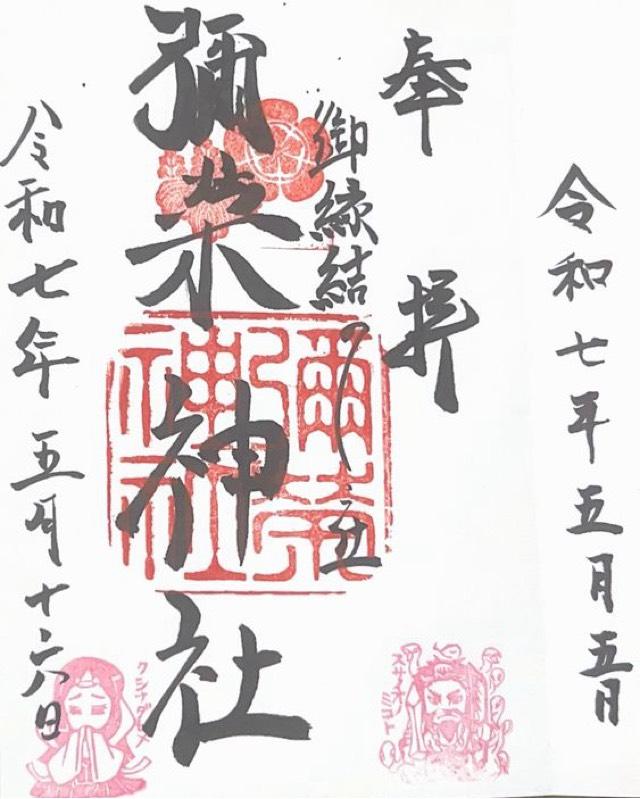 令和七年五月五日
奉拝
御縁結の
彌栄神社
彌榮
神社
令和七年五月十六日
スサノオノミコト
クシナダヒメ